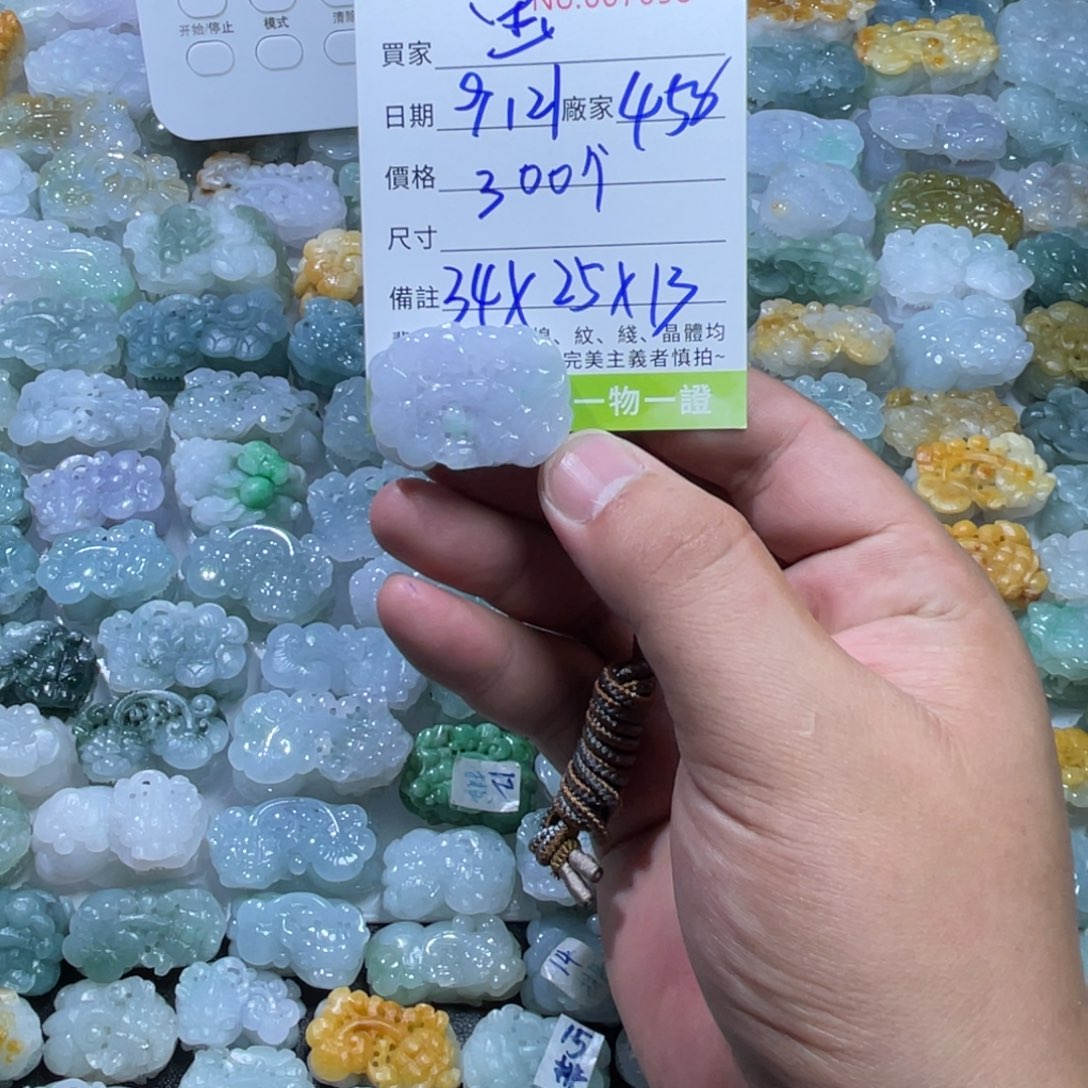 开始/停止 模式 清除
買家
日期 9 121 廠家 458
價格 300个
尺寸
備註 34X25X13
、紋、綫、晶體均
完美主義者慎拍~
一物一證
12
14
15